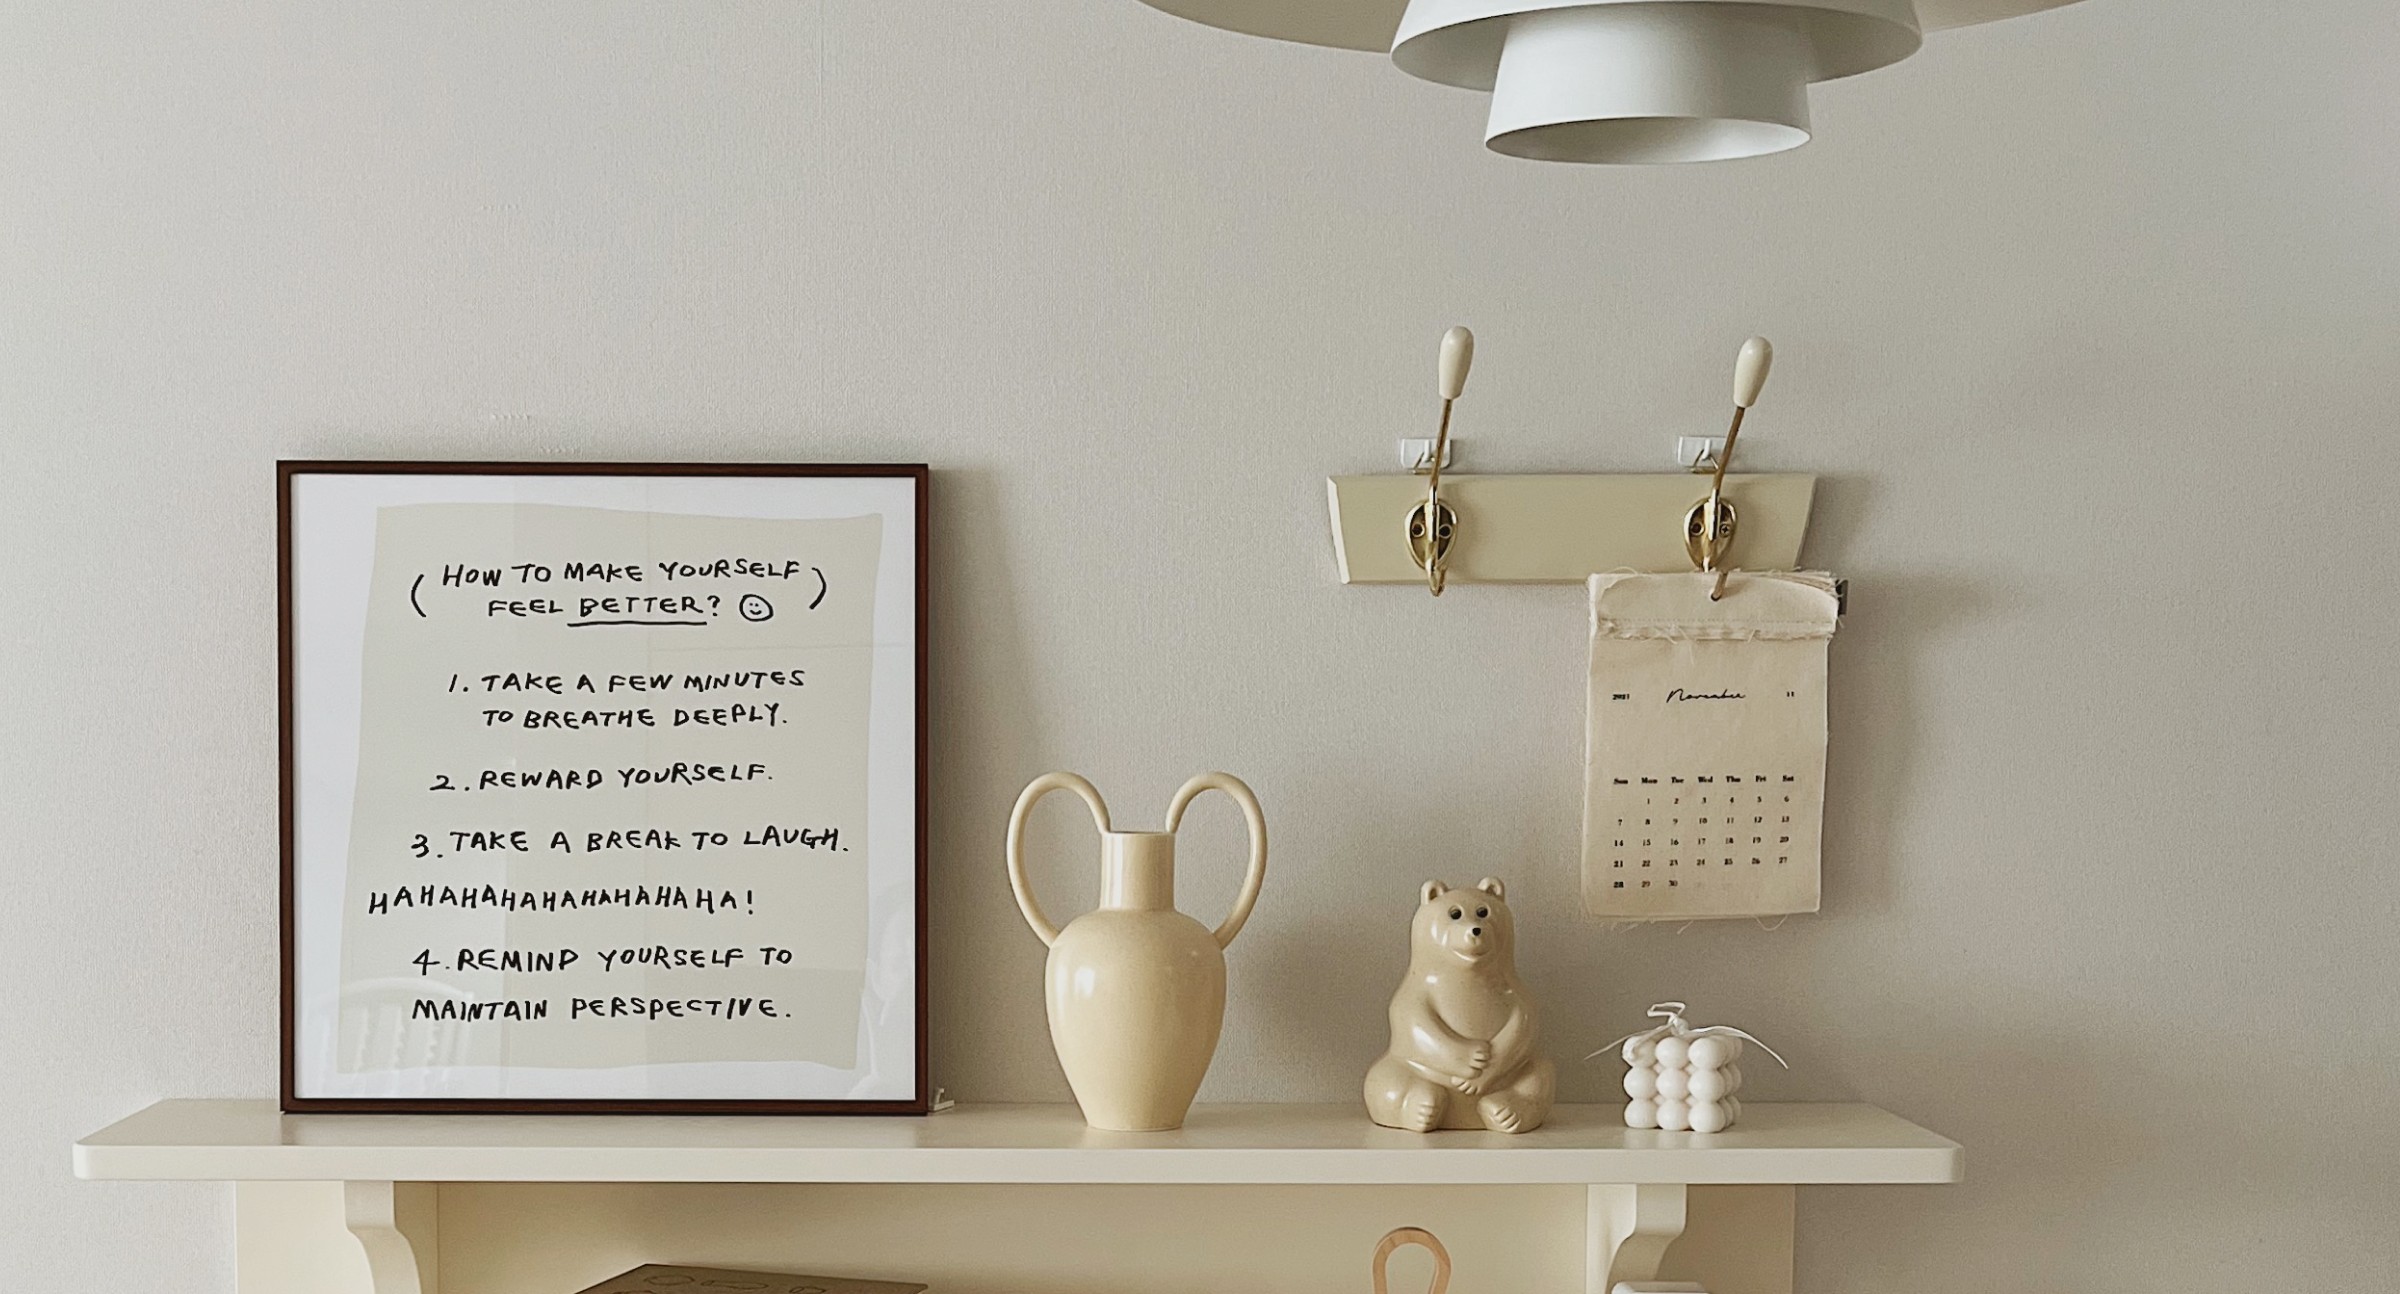 (HOW TO MAKE YOURSELF
FEEL BETTER? ☺)
1. TAKE A FEW MINUTES
TO BREATHE DEEPLY.
2. REWARD YOURSELF.
3. TAKE A BREAK TO LAUGH.
HAHAHAHAHAHAHAHAHA!
4. REMIND YOURSELF TO
MAINTAIN PERSPECTIVE.
2021 November 11
Sun Mon Tue Wed Thu Fri Sat
1 2 3 4 5 6
7 8 9 10 11 12 13
14 15 16 17 18 19 20
21 22 23 24 25 26 27
28 29 30